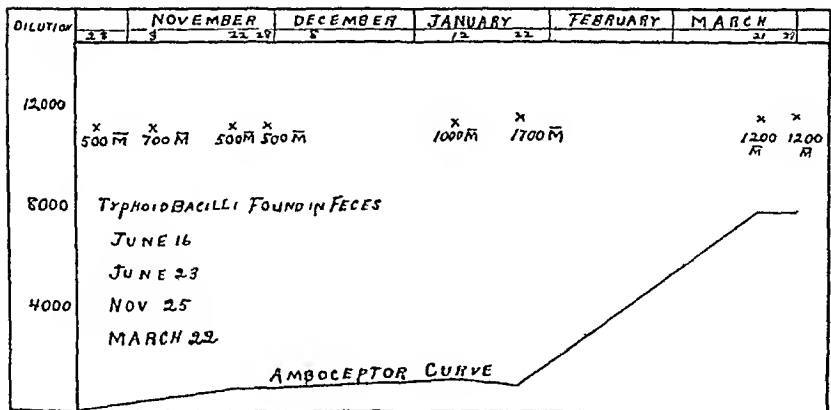 DILUTION NOVEMBER DECEMBER JANUARY FEBRUARY MARCH
28 9 22 28 8 12 22 21 27
12,000
x x x x x x x x
500 M̅ 700 M̅ 500 M̅ 500 M̅ 1000 M̅ 1700 M̅ 1200 M̅ 1200 M̅
8000 TYPHOID BACILLI FOUND IN FECES
JUNE 16
JUNE 23
4000 NOV 25
MARCH 22
AMBOCEPTOR CURVE